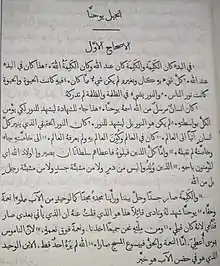 انجيل يوحنا
الاصحاح الاول
في البدء كان الكلمة والكلمة كان عند الله وكان الكلمة الله. هذا كان في البدء
عند الله. كل شيء به كان وبغيره لم يكن شيء مما كان. فيه كانت الحيوة والحيوة
كانت نور الناس. والنور يضيء في الظلمة والظلمة لم تدركه
كان انسان مرسل من الله اسمه يوحنا. هذا جاء للشهادة ليشهد للنور لكي يؤمن
الكل بواسطته. لم يكن هو النور بل ليشهد للنور. كان النور الحقيقي الذي ينير كل
انسان آتيا الى العالم. كان في العالم وكون العالم به ولم يعرفه العالم. الى خاصته جاء
وخاصته لم تقبله. واما كل الذين قبلوه فاعطاهم سلطانا ان يصيروا اولاد الله اي
المؤمنين باسمه. الذين ولدوا ليس من دم ولا من مشيئة جسد ولا من مشيئة رجل
بل من الله
والكلمة صار جسدا وحل بيننا وراينا مجده مجدا كما لوحيد من الآب مملوءا نعمة
وحقا. يوحنا شهد له ونادى قائلا هذا هو الذي قلت عنه ان الذي ياتي بعدي صار
قدامي لانه كان قبلي. ومن ملئه نحن جميعا اخذنا. ونعمة فوق نعمة. لان الناموس
بموسى اعطي. اما النعمة والحق فبيسوع المسيح صارا. الله لم يره احد قط. الابن الوحيد
الذي هو في حضن الآب هو خبر